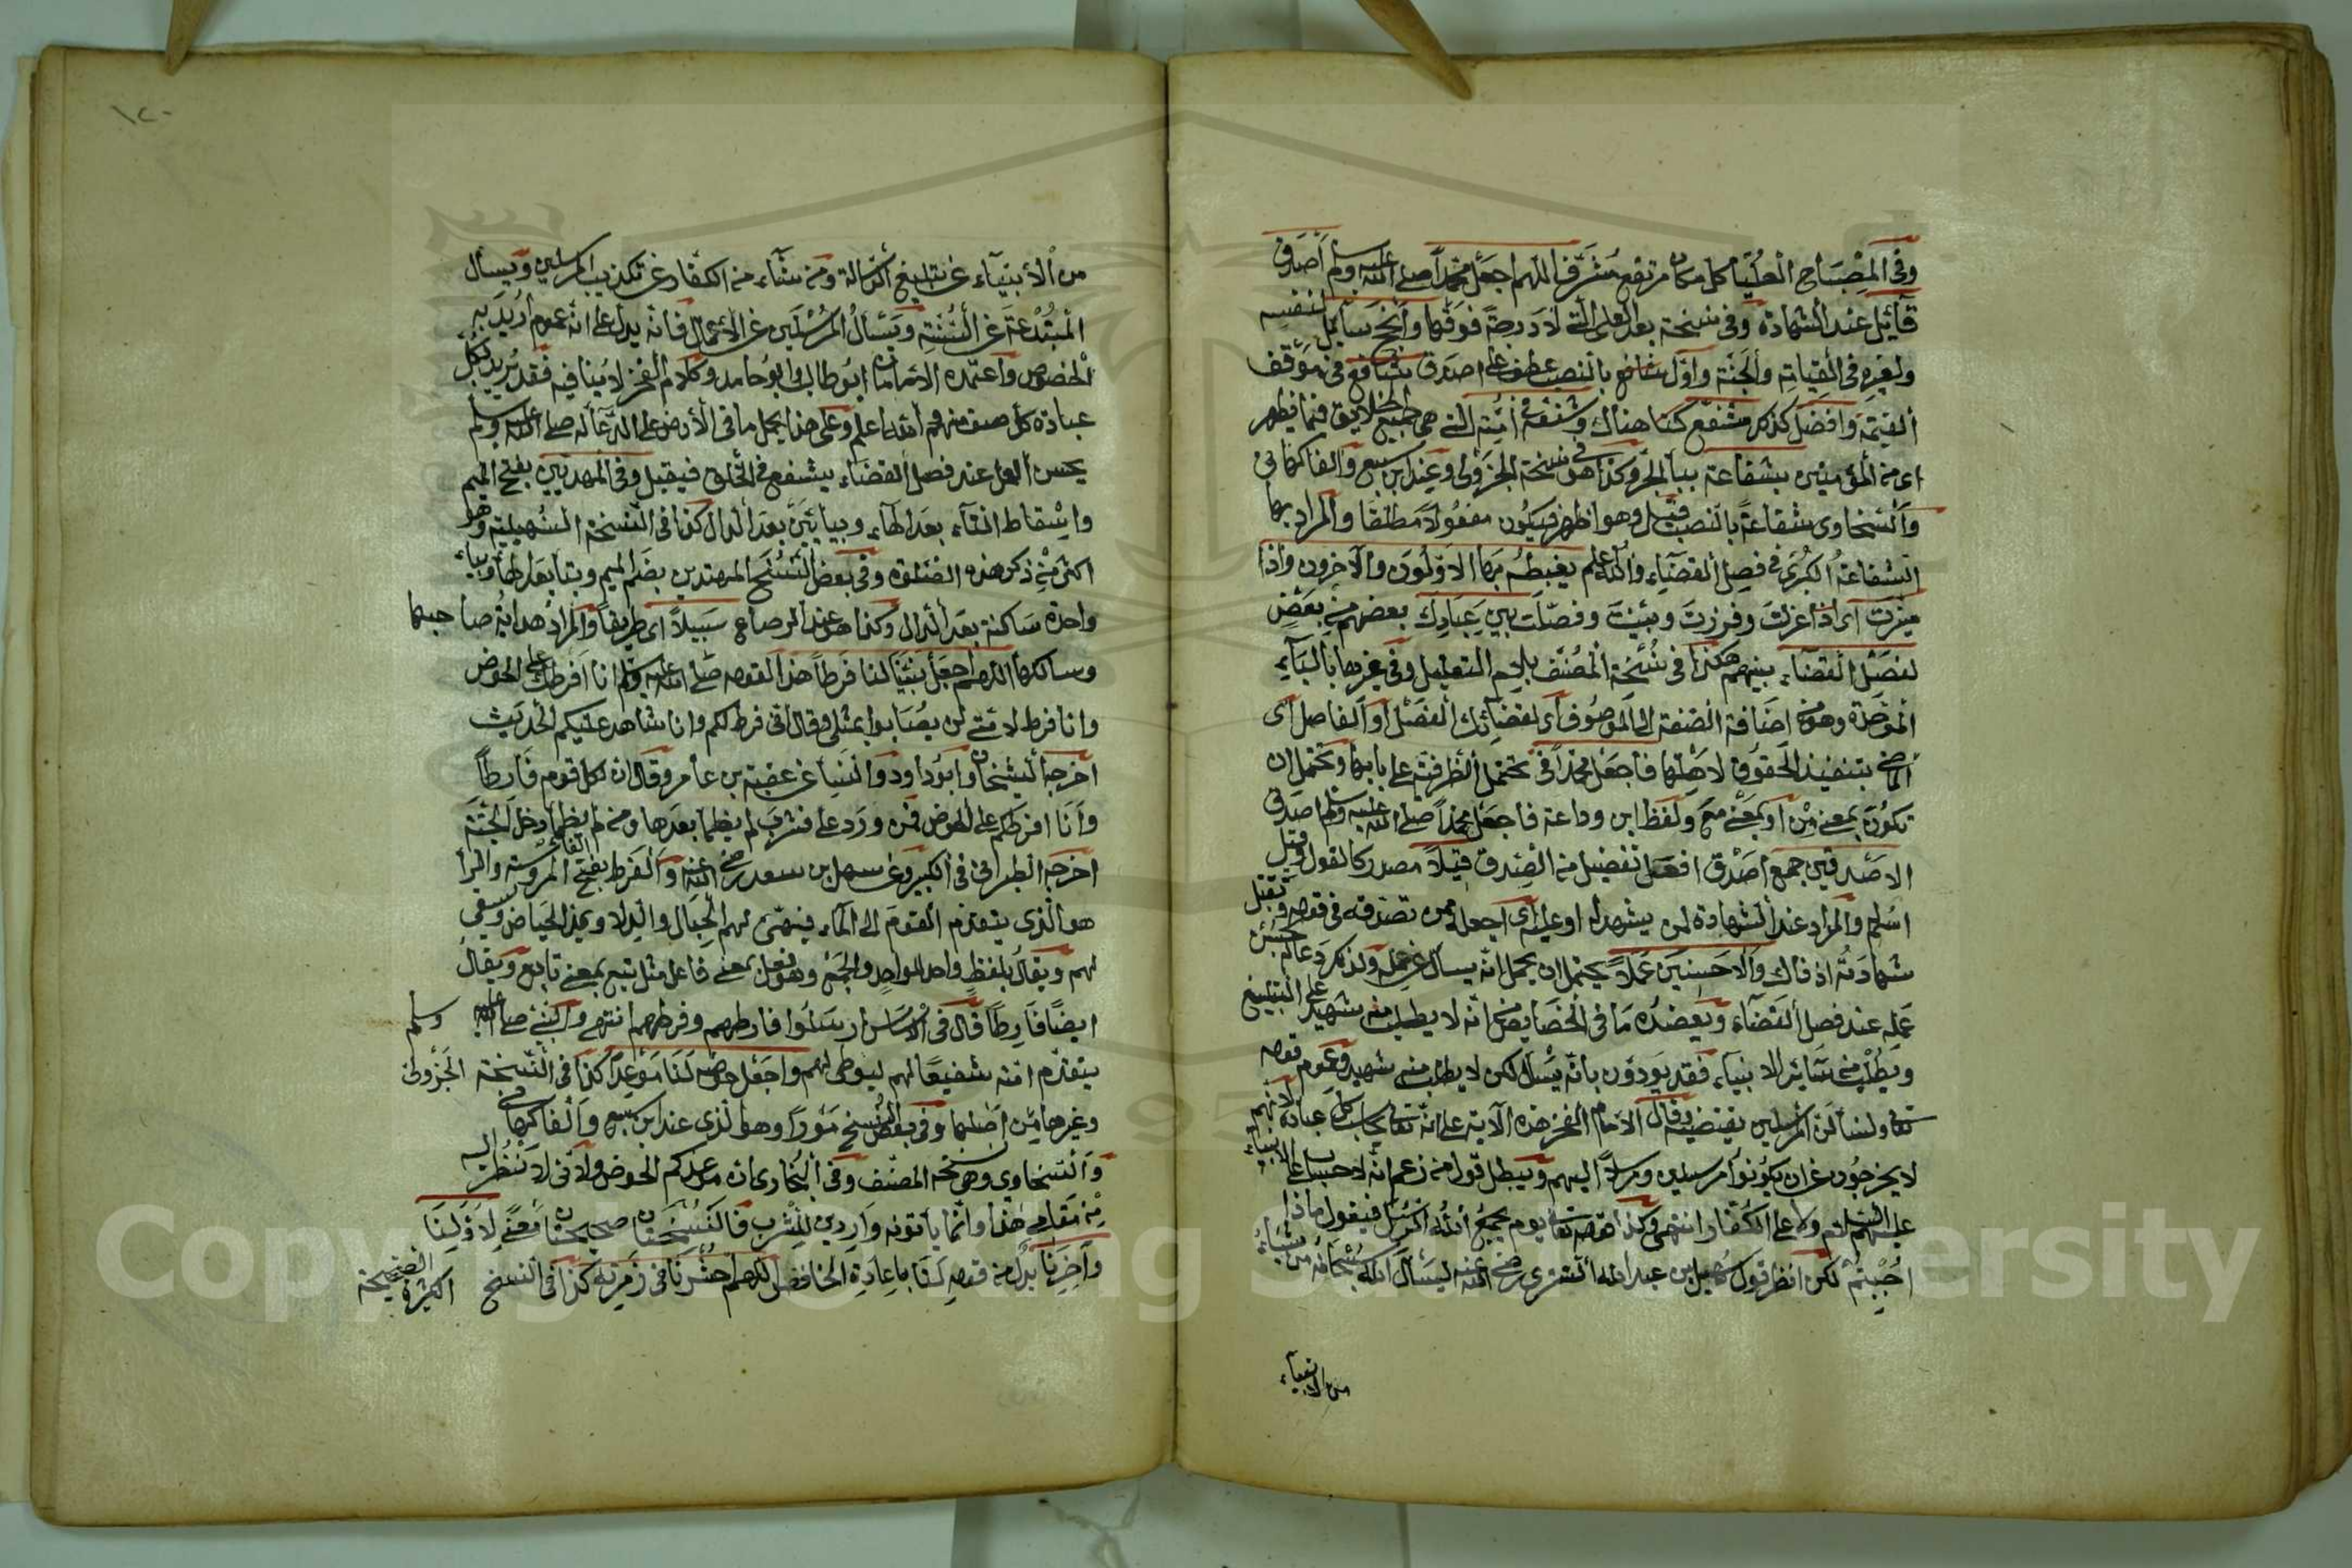 وفى المصباح العليا كل مكان مرتفع مشرف اللهم اجعل محمدا صلى الله عليه وسلم أصدق
قآئل عند الشهادة وفى نسخة بعد العلى التى لا درجة فوقها وأنجح سآئل لنفسه
ولغيره فى القيامة والجنة وأول شافع بالنصب عطف على اصدق شافع فى موقف
القيمة وافضل كذلك مشفع كذا هناك وشفعه فى أمته التى هى جميع الخلايق فيما يظهر
اى من المؤمنين بشفاعة ببآء الجر وكذا هو فى نسخة الجزولى وعند ابن سبع والفاكهانى
والسخاوى شفاعة بالنصب قيل وهو اظهر فيكون مفعولا مطلقا والمراد بها
الشفاعة الكبرى فى فصل القضآء والله اعلم يغبطه بها الاولون والآخرون واذا
ميزت اى اذا عزلت وفرزت وبينت وفصلت بين عبادك بعضهم من بعض
لفصل القضآء بينهم هكذا فى نسخة المصنف بلام التعليل وفى غيرها بالبآء
الموحدة وهو من اضافة الصفة الى الموصوف اى لقضائك الفصل أو الفاصل اى
الماضى بتنفيذ الحقوق لاهلها فاجعل محمدا فى تحتمل الظرفية على بابها وتحتمل ان
تكون بمعنى من او بمعنى مع ولفظ ابن وداعة فاجعل محمدا صلى الله عليه وسلم اصدق
الاصدقين جمع أصدق افعل تفضيل من الصدق قيلا مصدر كالقول وقيل
اسلم والمراد عند الشهادة لمن يشهد له او عليه اى اجعله ممن تصدقه فى قوله وتقبل
شهادته اذ ذاك والاحسنين عملا يحتمل ان يحمل انه يسأل عن عمله ولذكر دعاله بحسن
عمله عند فصل القضآء ويعضده ما فى الخصايص انه لا يطلب منه شهيد على التبليغ
ويطلب من سائر الانبيآء فقد يؤذن بانه يسأل لكن لا يطلب منه شهيد وعموم قوله
تعالى ولنسألن المرسلين يقتضيه وقال الامام الفخر هذه الآية على انه تعالى يحاسب كل عباده لانهم
لا يخرجون عن ان يكونوا مرسلين ومرسلا اليهم ويبطل قول من زعم انه لا حساب على الانبياء
عليهم السلام ولا على الكفار انتهى وكذا قوله تعالى يوم يجمع الله الرسل فيقول ماذا
اجبتم لكن انظر قول سهل بن عبد الله التسترى رضى الله عنه ليسأل الله سبحانه من شاء
من الانبيآء
١٢٠
من الأنبيآء عن تبليغ الرسالة ومن شآء من الكفار عن تكذيب المرسلين ويسأل
المبتدعة عن السنة ويسأل المرسلين عن الاعمال فانه يدل على انه عموم أريد به
الخصوص واعتمده الامامان ابو طالب وابو حامد وكلام الفخر لا ينافيه فقد يريد بكل
عباده كل صنف منهم والله اعلم وعلى هذا يحمل ما فى الأرض على الدعآ له صلى الله عليه وسلم
بحسن العمل عند فصل القضآء يشفع فى الخلق فيقبل وفى المهديين بفتح الميم
واسقاط التآء بعد الهآء وبيائين بعد الدال كذا فى النسخة السهيلية وهو
اكثر من ذكر هذه الصلوة وفى بعض النسخ المهتدين بضم الميم وبتآء بعد الهآء وبيآء
واحدة ساكنة بعد الدال وكذا هو عند الرصاع سبيلا اى طريقا والمراد هداية صاحبها
وسالكها اللهم اجعل نبينا لنا فرطا هذا لقوله صلى الله عليه وسلم انا فرطكم على الحوض
وانا فرط لامتى لن يصابوا بمثلى وقال انى فرط لكم وانا شاهد عليكم الحديث
اخرجه الشيخان وابو داود والنسآئى عن عقبة بن عامر وقال ان لكل قوم فارطا
وأنا افرطكم على الحوض فمن ورد على فشرب لم يظمأ بعدها ومن لم يظمأ دخل الجنة
اخرجه الطبرانى فى الكبير وعن سهل بن سعد رضى الله عنه والفرط بفتح الفاء المروسة والرآ
هو الذى يتقدم القوم الى المآء فيهئ لهم الحبال والدلا ويمدر الحياض ويسقى
لهم ويقال بلفظ واحد للواحد والجمع وهو فعل بمعنى فاعل مثل تبع بمعنى تابع ويقال
ايضا فارطا قال فى الاساس ارسلوا فارطهم وفرطهم انتهى والنبى صلى الله عليه وسلم
يتقدم امته شفيعا لهم ليوطى لهم واجعل حوضه لنا موعدا كذا فى النسخة الجزولى
وغيرها من اصلها وفى بعض النسخ موردا وهو الذى عند ابن سبع والفاكهانى
والسخاوى وهى نسخة المصنف وفى البخارى ان موعدكم الحوض وانى لانظر اليه
من مقامى هذا وانما يأتونه واردين للشرب فالنسختان صحيحتان معنى لاولنا
وآخرنا بدل من قوله لنا باعادة الخافض اللهم احشرنا فى زمرته كذا فى النسخ الكثيرة الصحيحة
Copyright © King Saud University